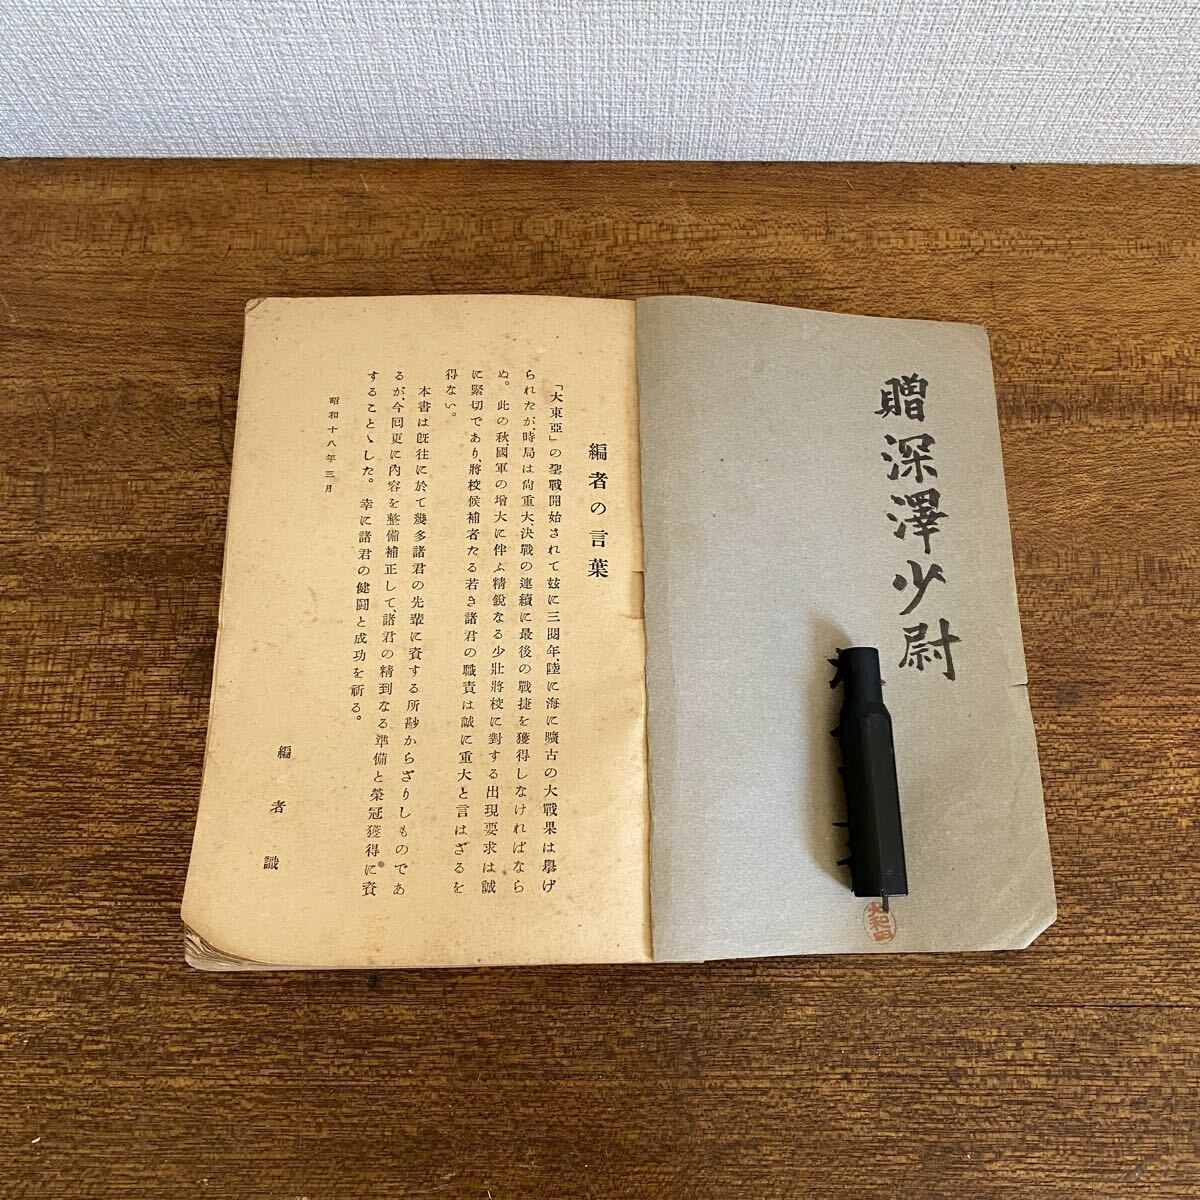 贈深澤少尉
編者の言葉
「大東亞」の聖戰開始されて玆に三閱年、陸に海に曠古の大戰果は擧げ
られたが、時局は尙重大決戰の連續に最後の戰捷を獲得しなければなら
ぬ。此の秋、國軍の增大に伴ふ精銳なる少壯將校に對する出現要求は誠
に緊切であり、將校候補者たる若き諸君の職責は誠に重大と言はざるを
得ない。
本書は旣往に於て幾多諸君の先輩に資する所尠からざりしものであ
るが今回更に內容を整備補正して、諸君の精到なる準備と榮冠獲得に資
することゝした。幸に諸君の健鬪と成功を祈る。
昭和十八年三月
編者識